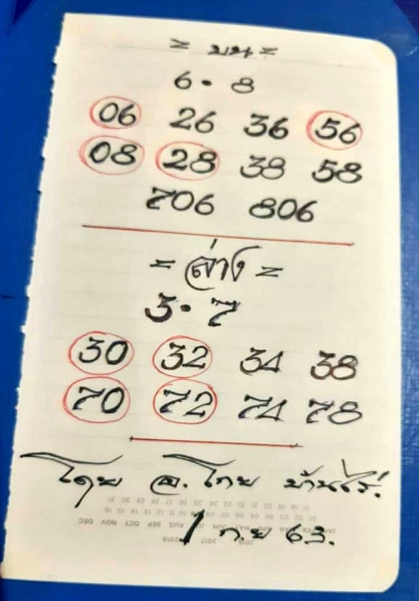 = บน =
6 • 8
06 26 36 56
08 28 38 58
706 806
= ล่าง =
3 • 7
30 32 34 38
70 72 74 78
โดย อ. โทย บ้านไร่.
1 ก.ย 63.